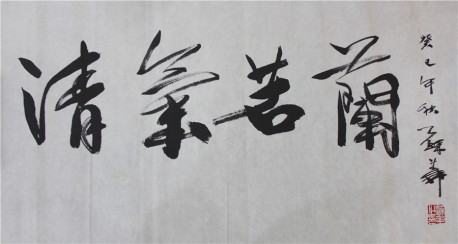 清氣若蘭
癸巳年秋